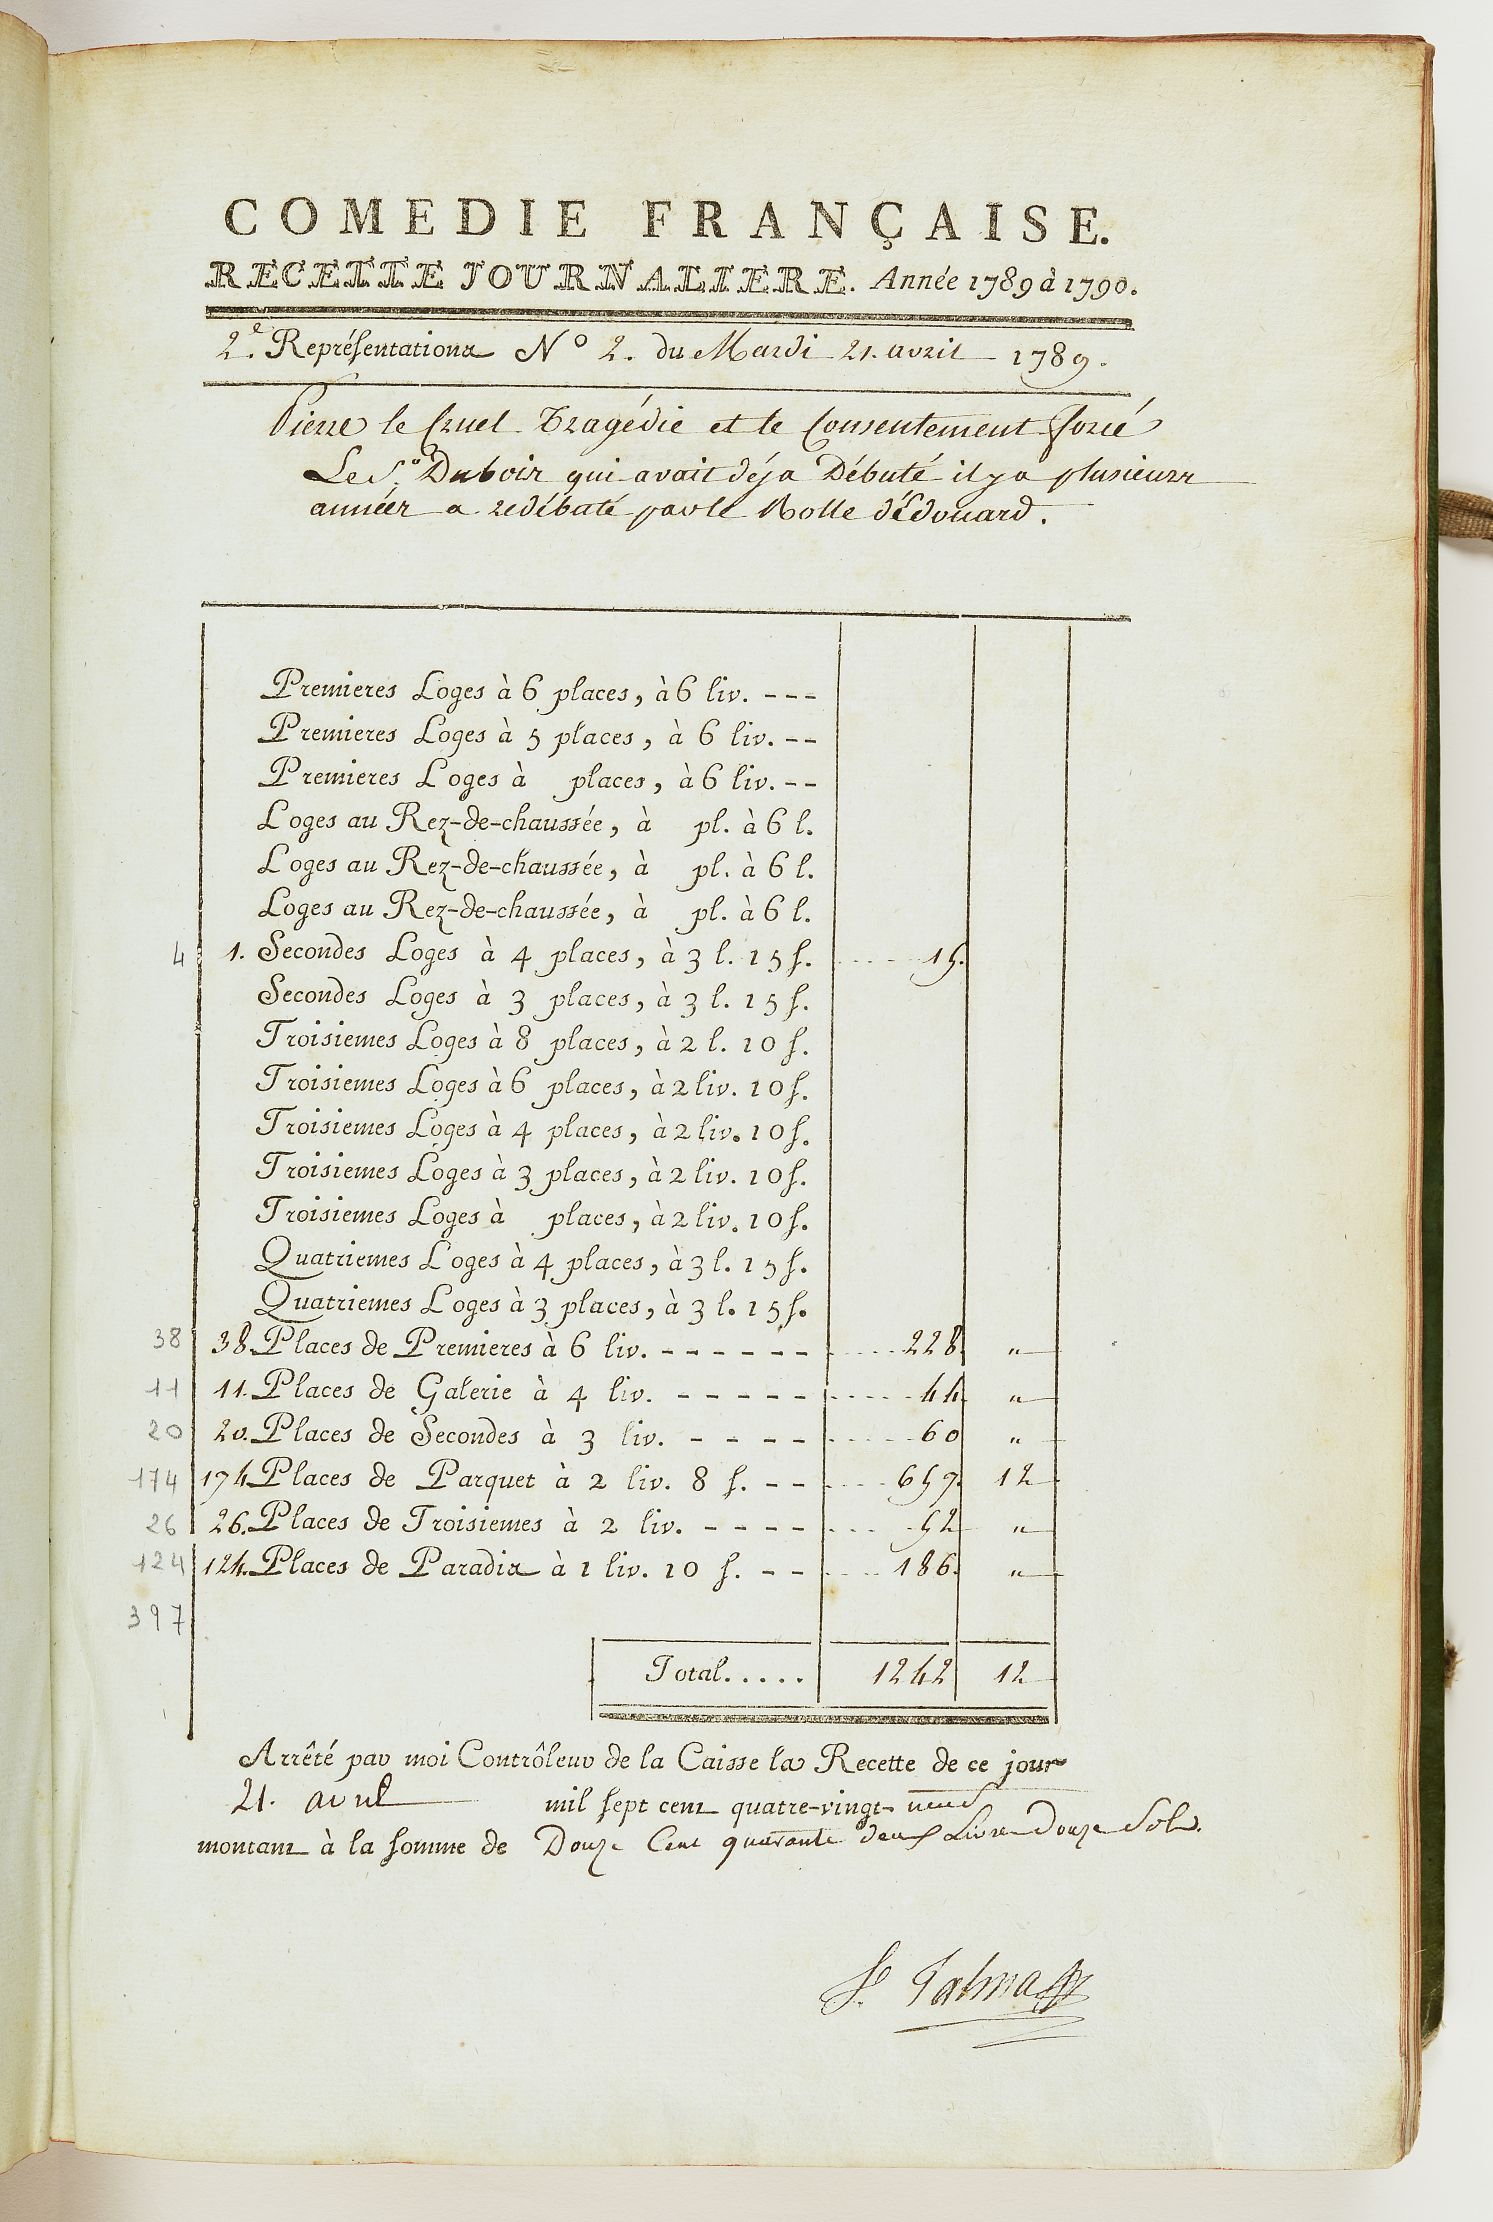 COMEDIE FRANÇAISE.
RECETTE JOURNALIERE. Année 1789 à 1790.
2e. Représentations N° 2. du Mardi 21. avril 1789.
Pierre le Cruel Tragédie et le Consentement forcé
Le Sr. Dubois qui avait déja Débuté il y a plusieurs
années a redébuté par le Rolle d'Edouard.
Premieres Loges à 6 places, à 6 liv. ---
Premieres Loges à 5 places, à 6 liv. --
Premieres Loges à places, à 6 liv. --
Loges au Rez-de-chaussée, à pl. à 6 l.
Loges au Rez-de-chaussée, à pl. à 6 l.
Loges au Rez-de-chaussée, à pl. à 6 l.
4 1. Secondes Loges à 4 places, à 3 l. 15 s. 15.
Secondes Loges à 3 places, à 3 l. 15 s.
Troisiemes Loges à 8 places, à 2 l. 10 s.
Troisiemes Loges à 6 places, à 2 liv. 10 s.
Troisiemes Loges à 4 places, à 2 liv. 10 s.
Troisiemes Loges à 3 places, à 2 liv. 10 s.
Troisiemes Loges à places, à 2 liv. 10 s.
Quatriemes Loges à 4 places, à 3 l. 15 s.
Quatriemes Loges à 3 places, à 3 l. 15 s.
38 38. Places de Premieres à 6 liv. ------ 228. "
11 11. Places de Galerie à 4 liv. ----- 44. "
20 20. Places de Secondes à 3 liv. ---- 60 "
174 174 Places de Parquet à 2 liv. 8 s. -- 657. 12
26 26. Places de Troisiemes à 2 liv. ---- 52 "
124 124. Places de Paradis à 1 liv. 10 s. -- 186. "
397
Total..... 1242 12
Arrêté par moi Contrôleur de la Caisse la Recette de ce jour
21. avril mil sept cent quatre-vingt-neuf
montant à la somme de Douze Cent quarante deux Livres Douze Sols.
Talma